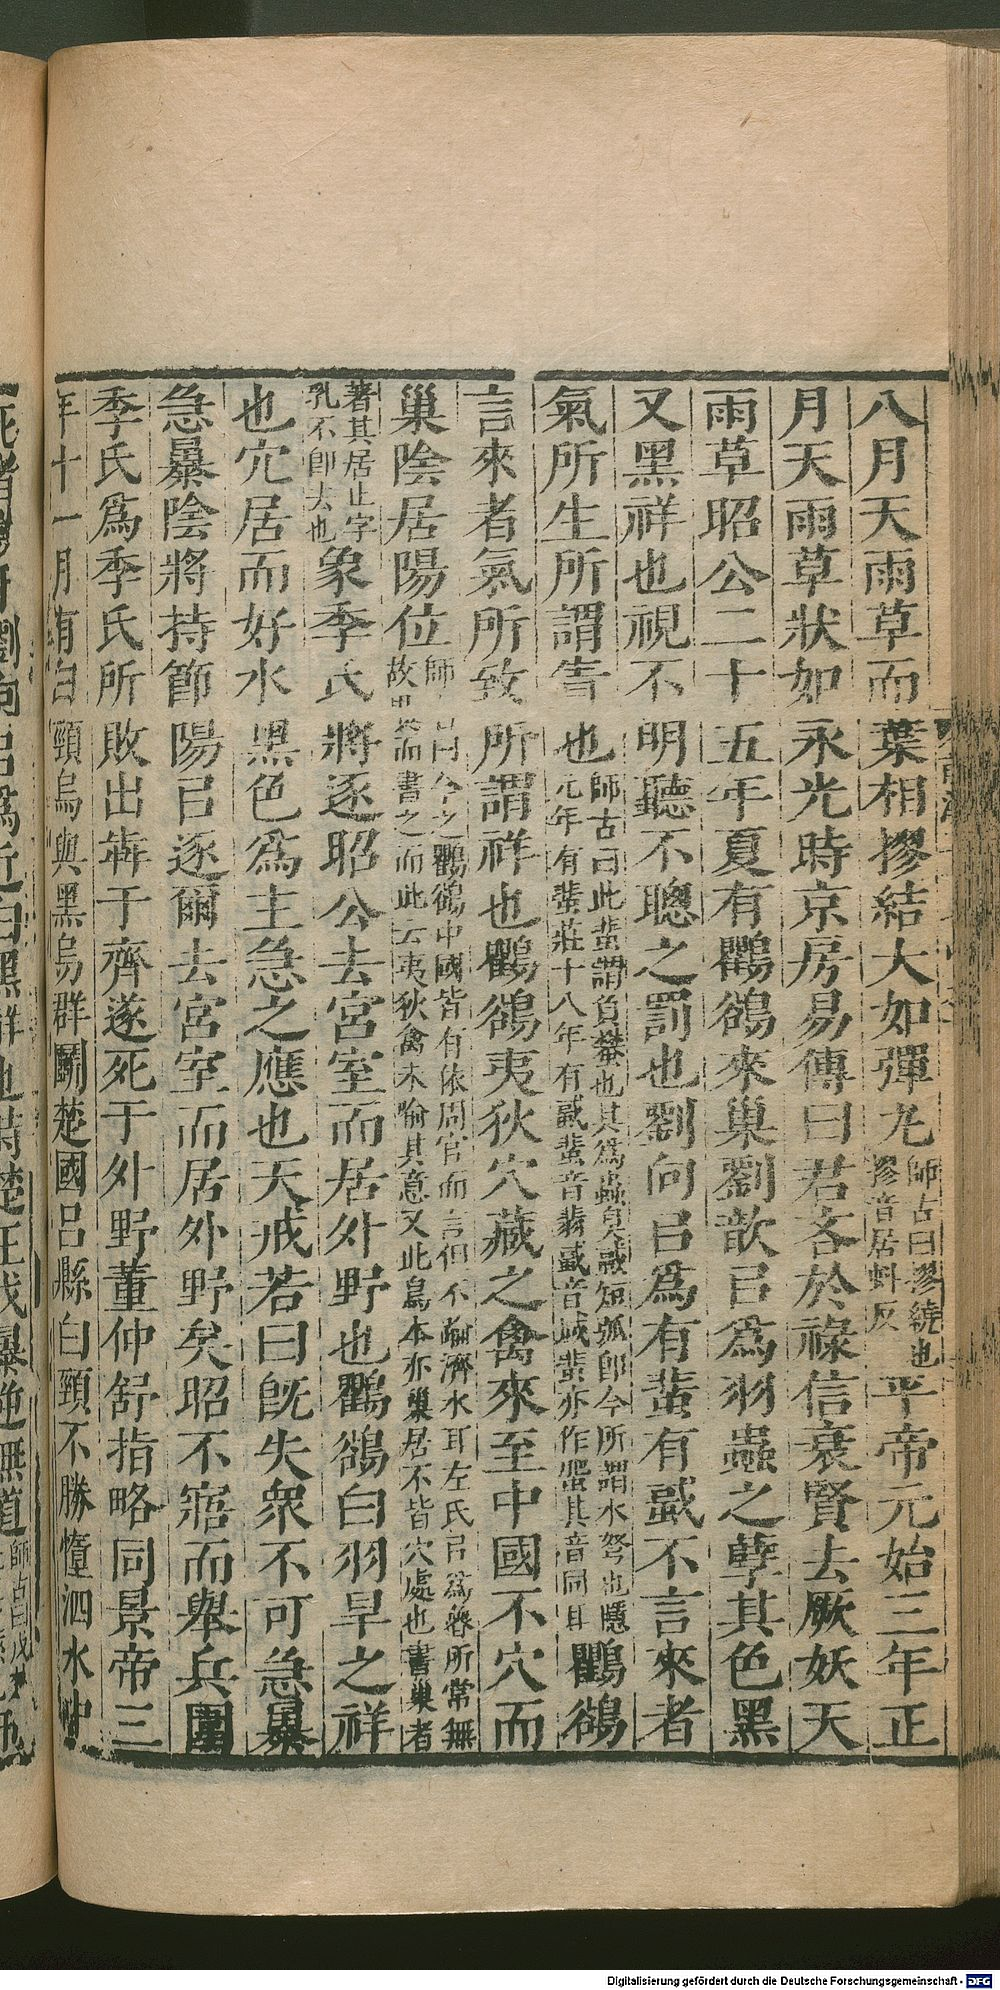 八月天雨草而葉相摎結大如彈丸師古曰摎繞也摎音居虯反平帝元始三年正
月天雨草狀如永光時京房易傳曰君吝於祿信衰賢去厥妖天
雨草昭公二十五年夏有鸜鵒來巢劉歆㠯爲羽蟲之孽其色黑
又黑祥也視不明聽不聰之罰也劉向㠯爲有蜚有蜮不言來者
氣所生所謂眚也師古曰此蜚謂負蠜也其爲蟲臭蜮短狐卽今所謂水弩也隱元年有蜚莊十八年有蜮蜚音翡蜮音蜮蜚亦作蜰其音同耳鸜鵒
言來者氣所致所謂祥也鸜鵒夷狄穴藏之禽來至中國不穴而
巢陰居陽位師古曰今之鸜鵒中國皆有依周官而言但不踰濟水耳左氏㠯爲魯所常無故異而書之而此云夷狄禽未喻其意又此鳥本亦巢居不皆穴處也書巢者
著其居止字乳不卽去也象季氏將逐昭公去宮室而居外野也鸜鵒白羽旱之祥
也穴居而好水黑色爲主急之應也天戒若曰旣失衆不可急暴
急暴陰將持節陽㠯逐爾去宮室而居外野矣昭不寤而舉兵圍
季氏爲季氏所敗出犇于齊遂死于外野董仲舒指略同景帝三
年十一月有白頸烏與黑烏群鬬楚國呂縣白頸不勝墮泗水中
死者 劉向㠯爲近白黑祥也時楚王戊暴逆無道師古曰戊
Digitalisierung gefördert durch die Deutsche Forschungsgemeinschaft - DFG